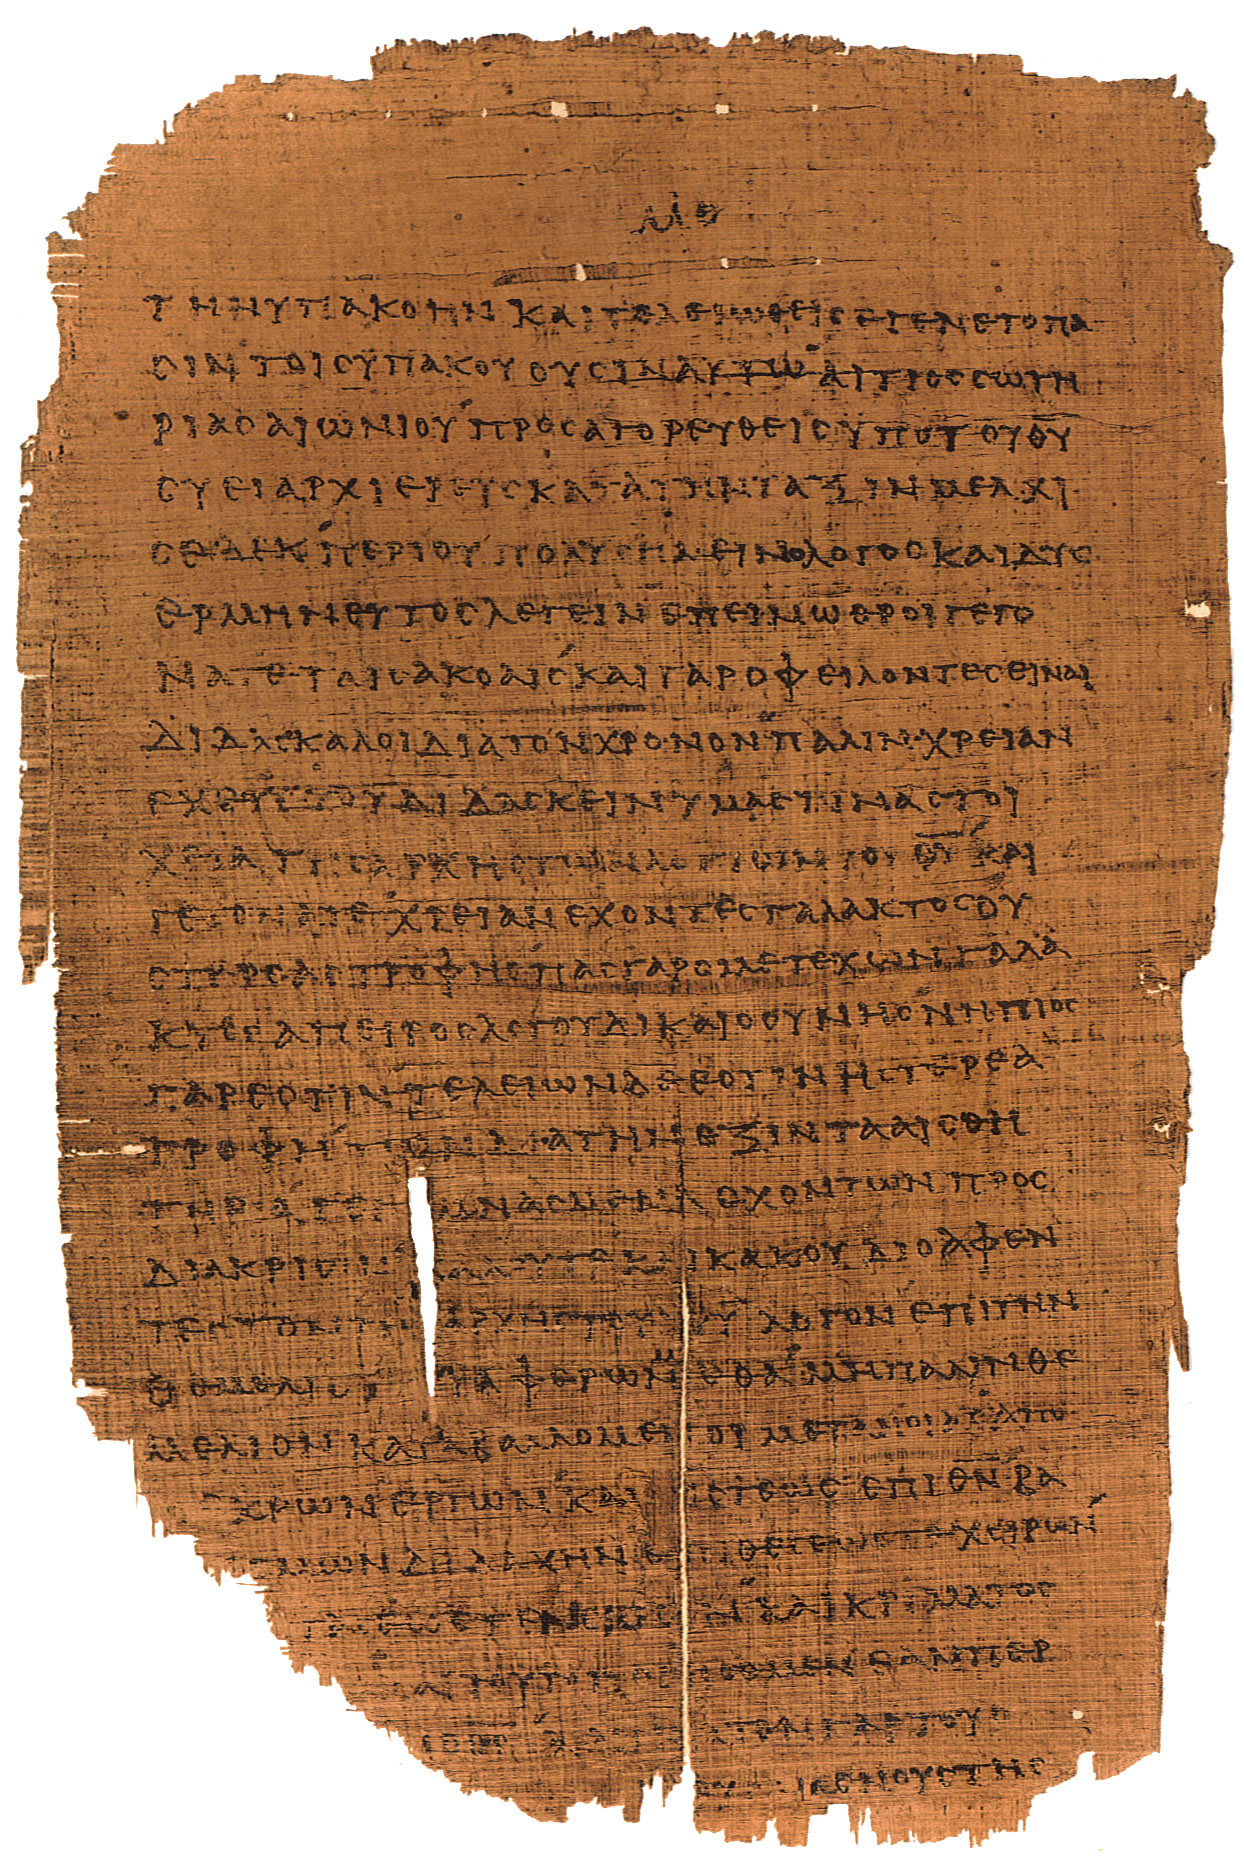 ΤΗΝ ΥΠΑΚΟΗΝ ΚΑΙ ΤΕΛΕΙΩΘΕΙC ΕΓΕΝΕΤΟ ΠΑ
CΙΝ ΤΟΙC ΥΠΑΚΟΥΟΥCΙΝ ΑΥΤΩ ΑΙΤΙΟC CΩΤΗ
ΡΙΑC ΑΙΩΝΙΟΥ ΠΡΟCΑΓΟΡΕΥΘΕΙC ΥΠΟ ΤΟΥ Θ̅Υ̅
CΥ ΕΙ ΑΡΧΙΕΡΕΥC ΚΑΤΑ ΤΗΝ ΤΑΞΙΝ ΜΕΛΧΙ
CΕΔΕΚ ΠΕΡΙ ΟΥ ΠΟΛΥC ΗΜΕΙΝ Ο ΛΟΓΟC ΚΑΙ ΔΥC
ΕΡΜΗΝΕΥΤΟC ΛΕΓΕΙΝ ΕΠΕΙ ΝΩΘΡΟΙ ΓΕΓΟ
ΝΑΤΕ ΤΑΙC ΑΚΟΑΙC ΚΑΙ ΓΑΡ ΟΦΕΙΛΟΝΤΕC ΕΙΝΑΙ
ΔΙΔΑCΚΑΛΟΙ ΔΙΑ ΤΟΝ ΧΡΟΝΟΝ ΠΑΛΙΝ ΧΡΕΙΑΝ
ΕΧΕΤΕ ΤΟΥ ΔΙΔΑCΚΕΙΝ ΥΜΑC ΤΙΝΑ CΤΟΙ
ΧΕΙΑ ΤΗC ΑΡΧΗC ΤΩΝ ΛΟΓΙΩΝ ΤΟΥ Θ̅Υ̅ ΚΑΙ
ΓΕΓΟΝΑΤΕ ΧΡΕΙΑΝ ΕΧΟΝΤΕC ΓΑΛΑΚΤΟC ΟΥ
CΤΕΡΕΑC ΤΡΟΦΗC ΠΑC ΓΑΡ Ο ΜΕΤΕΧΩΝ ΓΑΛΑ
ΚΤΟC ΑΠΕΙΡΟC ΛΟΓΟΥ ΔΙΚΑΙΟCΥΝΗC ΝΗΠΙΟC
ΓΑΡ ΕCΤΙΝ ΤΕΛΕΙΩΝ ΔΕ ΕCΤΙΝ Η CΤΕΡΕΑ
ΤΡΟΦΗ ΤΩΝ ΔΙΑ ΤΗΝ ΕΞΙΝ ΤΑ ΑΙCΘΗ
ΤΗΡΙΑ ΝΑCΜΕΝΑ ΕΧΟΝΤΩΝ ΠΡΟC
ΔΙΑΚΡΙCΙΝ ΚΑΙ ΚΑΚΟΥ ΔΙΟ ΑΦΕΝ
ΤΕC ΤΟΝ ΤΗC ΤΟΥ Χ̅Υ̅ ΛΟΓΟΝ ΕΠΙ ΤΗΝ
ΦΕΡΩΜΕΘΑ ΜΗ ΠΑΛΙΝ ΘΕ
ΜΕΛΙΟΝ ΚΑΤΑΒΑΛΛΟΜΕΝΟΙ ΜΕΤΑΝΟΙΑC ΑΠΟ
ΚΡΩΝ ΕΡΓΩΝ ΚΑΙ ΠΙCΤΕΩC ΕΠΙ Θ̅Ν̅ ΒΑ
ΔΙΔΑΧΗΝ ΕΠΙΘΕCΕΩC ΤΕ ΧΕΙΡΩΝ
ΚΑΙ ΚΡΙΜΑΤΟC
ΕΑΝΠΕΡ
ΓΑΡ ΤΟΥC
ΤΗC